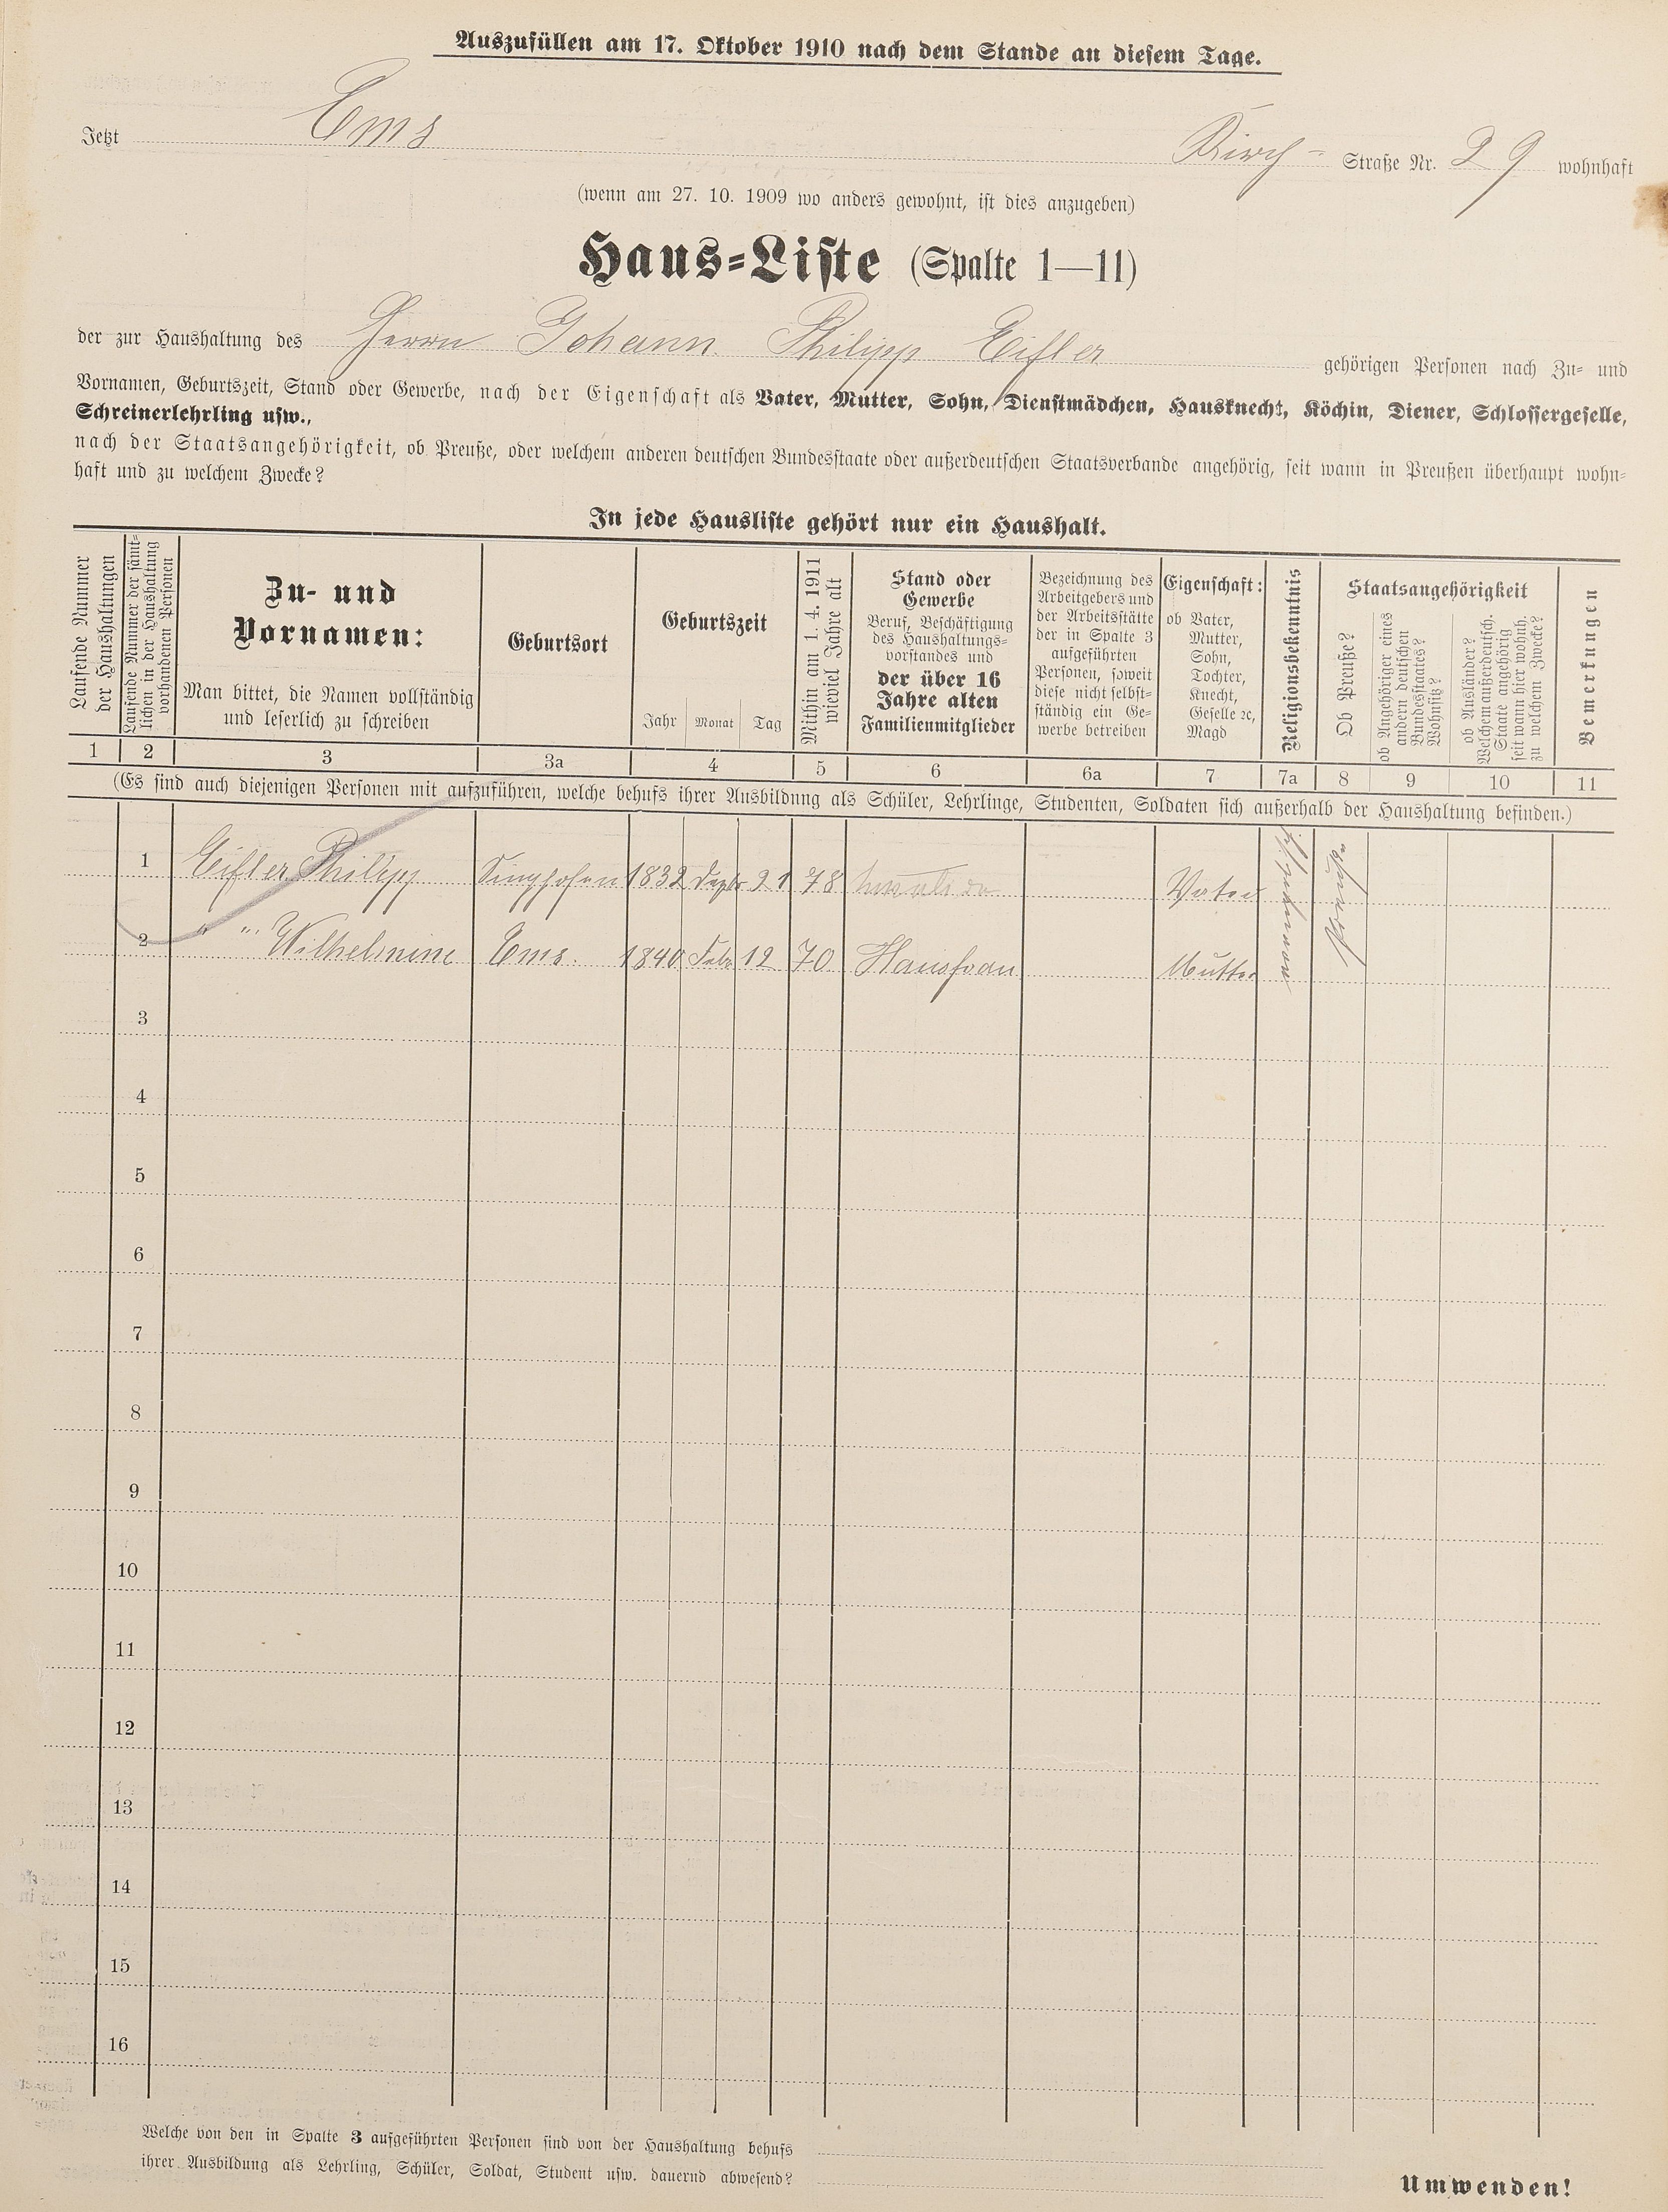 Auszufüllen am 17. Oktober 1910 nach dem Stande an diesem Tage.
Jetzt Ems Kirch- Straße Nr. 29 wohnhaft
(wenn am 27. 10. 1909 wo anders gewohnt, ist dies anzugeben)
Haus-Liste (Spalte 1—11)
der zur Haushaltung des Herrn Johann Philipp Eifler gehörigen Personen nach Zu- und
Vornamen, Geburtszeit, Stand oder Gewerbe, nach der Eigenschaft als Vater, Mutter, Sohn, Dienstmädchen, Hausknecht, Köchin, Diener, Schlossergeselle,
Schreinerlehrling usw.,
nach der Staatsangehörigkeit, ob Preuße, oder welchem anderen deutschen Bundesstaate oder außerdeutschen Staatsverbande angehörig, seit wann in Preußen überhaupt wohn-
haft und zu welchem Zwecke?
In jede Hausliste gehört nur ein Haushalt.
Laufende Nummer
der Haushaltungen
Laufende Nummer der sämt-
lichen in der Haushaltung
vorhandenen Personen
Zu- und
Vornamen:
Man bittet, die Namen vollständig
und leserlich zu schreiben
Geburtsort
Geburtszeit
Jahr Monat Tag
Mithin am 1. 4. 1911
wieviel Jahre alt
Stand oder
Gewerbe
Beruf, Beschäftigung
des Haushaltungs-
vorstandes und
der über 16
Jahre alten
Familienmitglieder
Bezeichnung des
Arbeitgebers und
der Arbeitsstätte
der in Spalte 3
aufgeführten
Personen, soweit
diese nicht selbst-
ständig ein Ge-
werbe betreiben
Eigenschaft:
ob Vater,
Mutter,
Sohn,
Tochter,
Knecht,
Geselle ꝛc,
Magd
Religionsbekenntnis
Staatsangehörigkeit
Ob Preuße?
ob Angehöriger eines
andern deutschen
Bundesstaates?
Wohnsitz?
ob Ausländer?
Welchem außerdeutsch.
Staate angehörig
seit wann hier wohnh.
zu welchem Zwecke?
Bemerkungen
1 2 3 3a 4 5 6 6a 7 7a 8 9 10 11
(Es sind auch diejenigen Personen mit aufzuführen, welche behufs ihrer Ausbildung als Schüler, Lehrlinge, Studenten, Soldaten sich außerhalb der Haushaltung befinden.)
1 Eifler Philipp Singhofen 1832 Dezbr 21 78 Invalide Vater
2 " " Wilhelmine Ems. 1840 Febr 12 70 Hausfrau Mutter
Preuße
3
4
5
6
7
8
9
10
11
12
13
14
15
16
Welche von den in Spalte 3 aufgeführten Personen sind von der Haushaltung behufs
ihrer Ausbildung als Lehrling, Schüler, Soldat, Student usw. dauernd abwesend?
Umwenden!